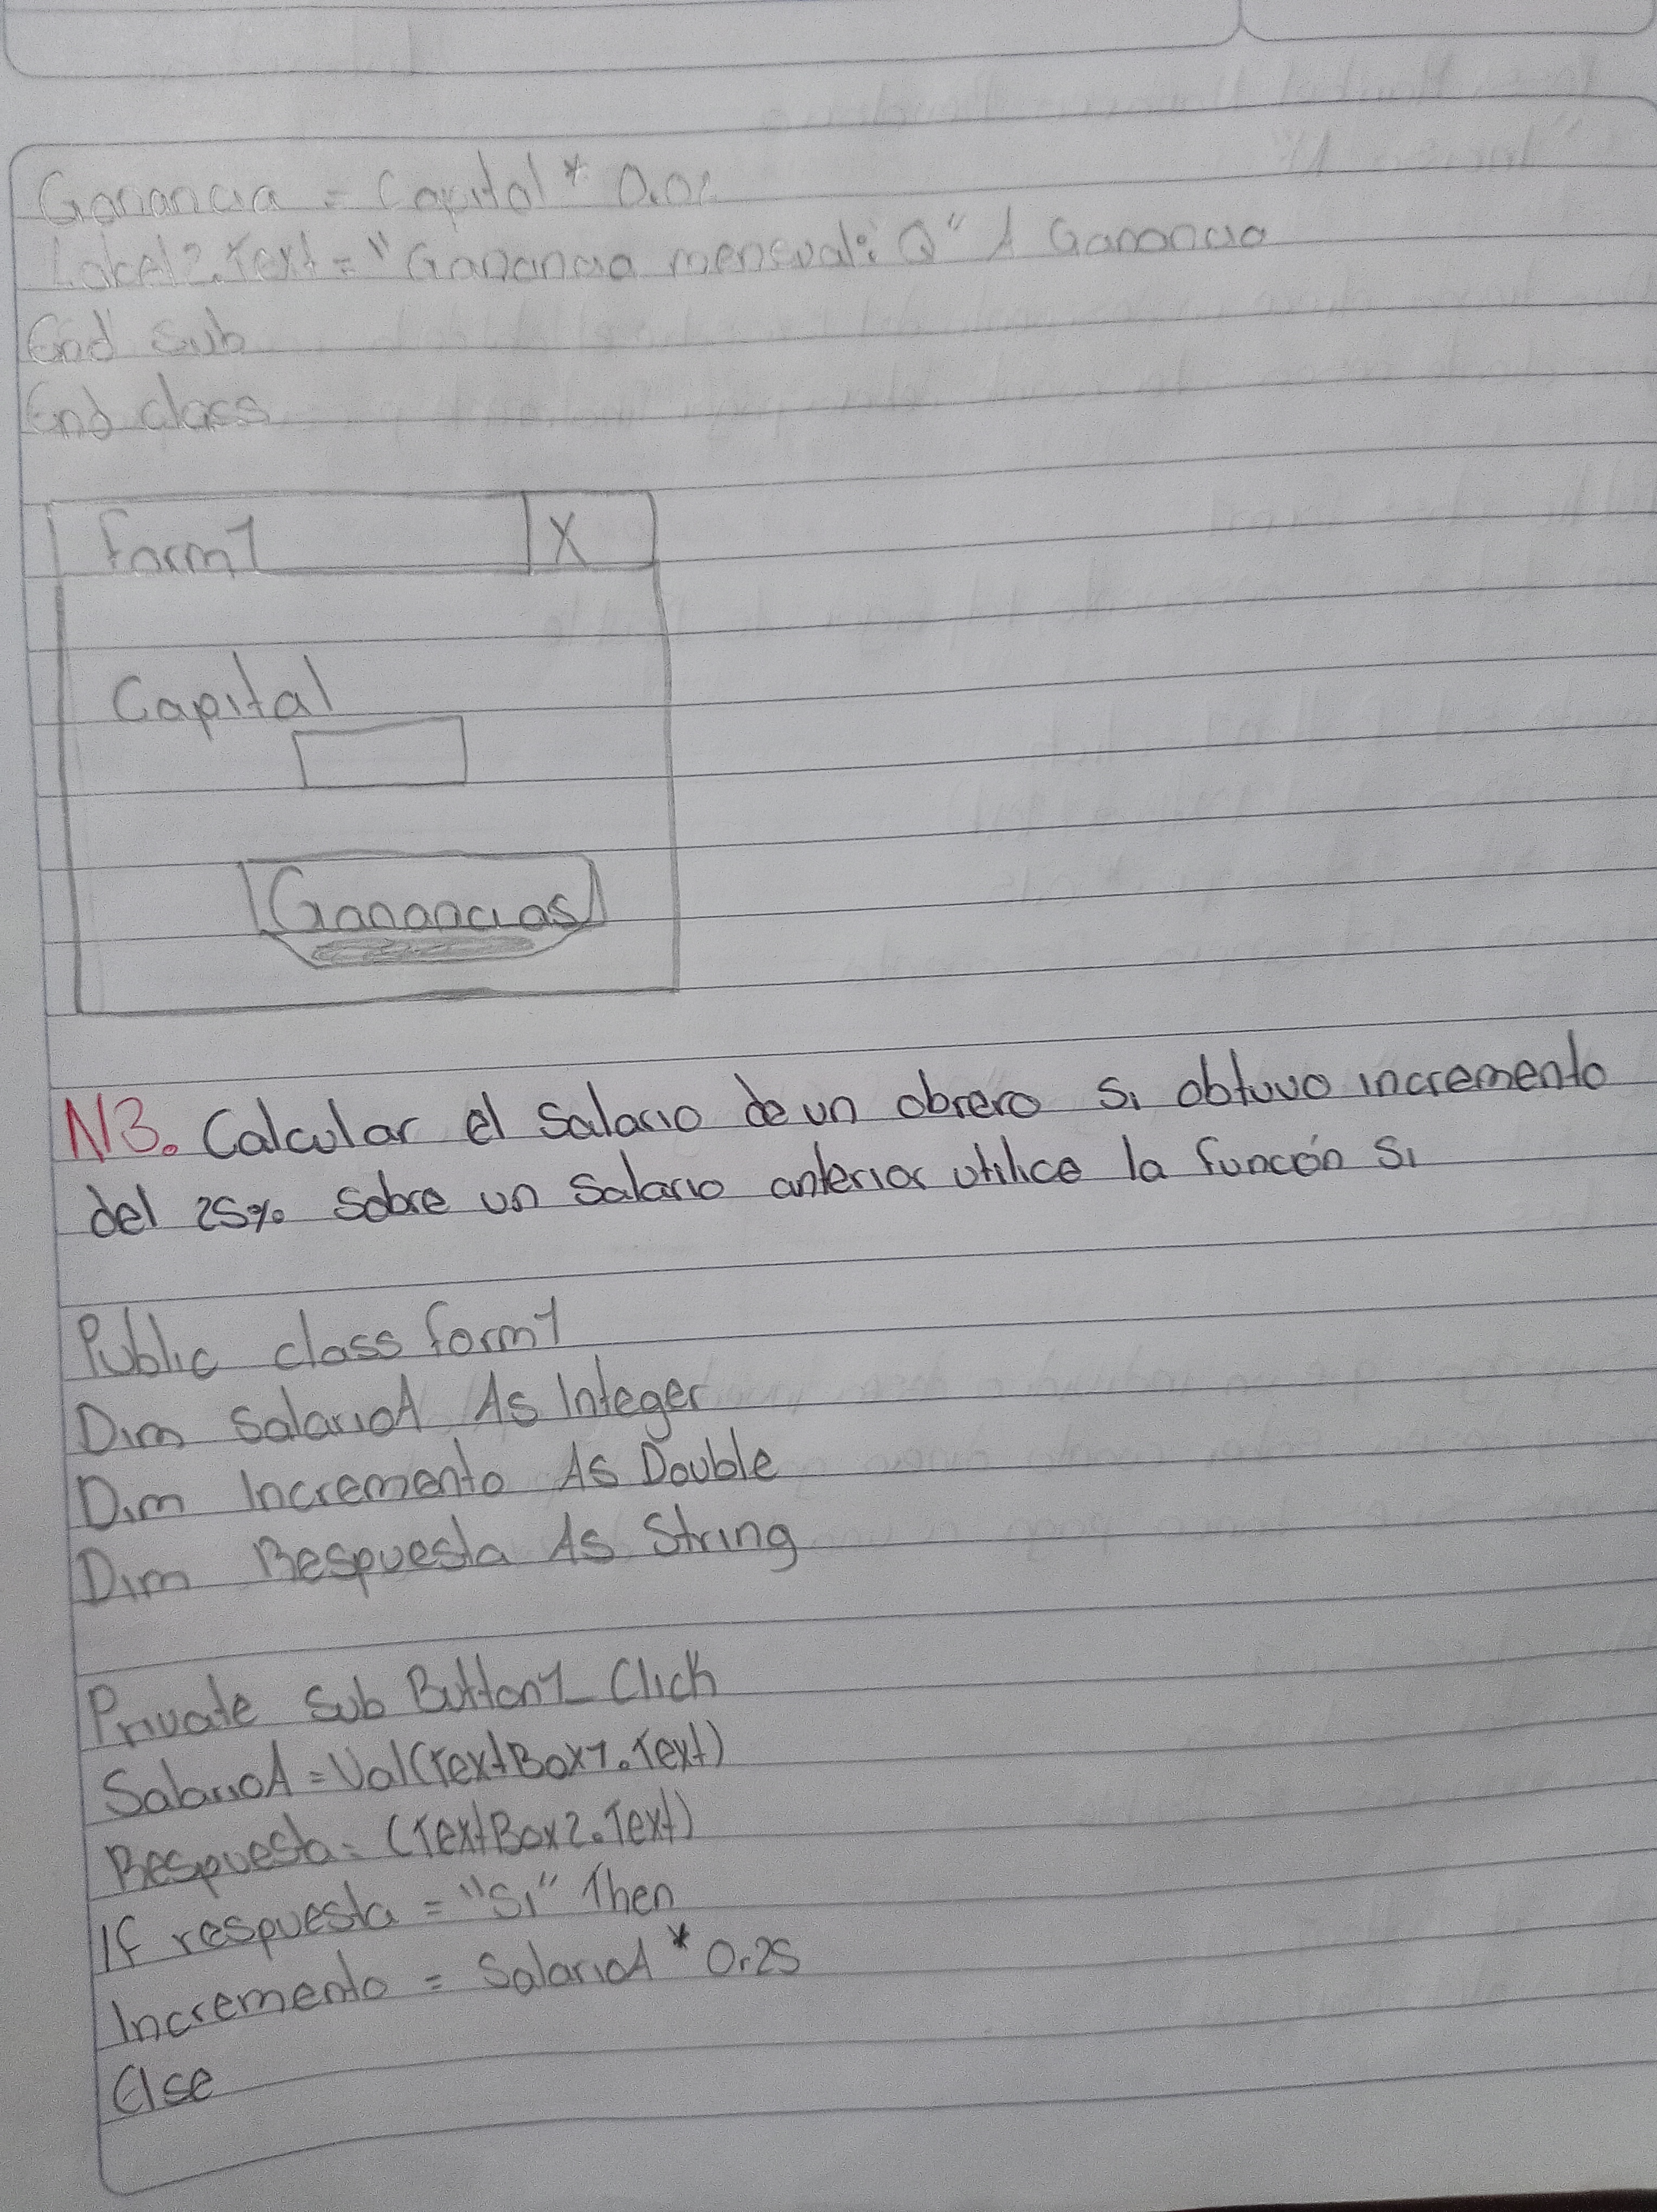 Ganancia = Capital * 0.02
Label2.Text = "Ganancia mensual: Q" & Ganancia
End sub
End class
Form1 X
Capital
Ganancias
N3. Calcular el Salario de un obrero si obtuvo incremento
del 25% sobre un salario anterior utilice la función si
Public class form1
Dim SalarioA As Integer
Dim Incremento As Double
Dim Respuesta As String
Private Sub Button1_Click
SalarioA = Val(TextBox1.Text)
Respuesta = (TextBox2.Text)
If respuesta = "Si" Then
Incremento = SalarioA * 0.25
Else